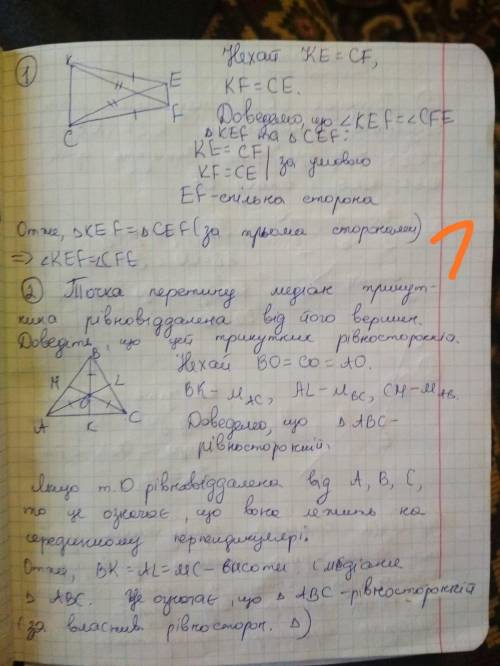 1
Нехай KE = CF,
KF = CE.
Доведемо, що ∠KEF = ∠CFE
△KEF та △CEF:
KE = CF
KF = CE | за умовою
EF - спільна сторона
K
E
F
C
Отже, △KEF = △CEF (за трьома сторонами)
⇒ ∠KEF = ∠CFE
1
2 Точка перетину медіан трикут-
ника рівновіддалена від його вершин.
Доведіть, що цей трикутник рівносторонній.
Нехай BO = CO = AO.
BK - m_AC, AL - m_BC, CM - m_AB.
Доведемо, що △ABC -
рівносторонній.
B
M
L
O
A
K
C
Якщо т. O рівновіддалена від A, B, C,
то це означає, що вона лежить на
серединному перпендикулярі.
Отже, BK = AL = MC - висоти і медіани
△ABC. Це означає, що △ABC - рівносторонній
(за власти рівносторон. △)